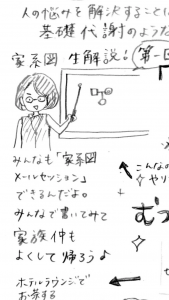 人の悩みを解決することに
基礎代謝のような
家系図 生解説。第一
みんなも「家系図
メールセッション」
できるんだよ。
みんなで書いてみて
家族仲も
よくして帰ろうよ
こんなの
やり
む
ホテルラウンジで
お茶する